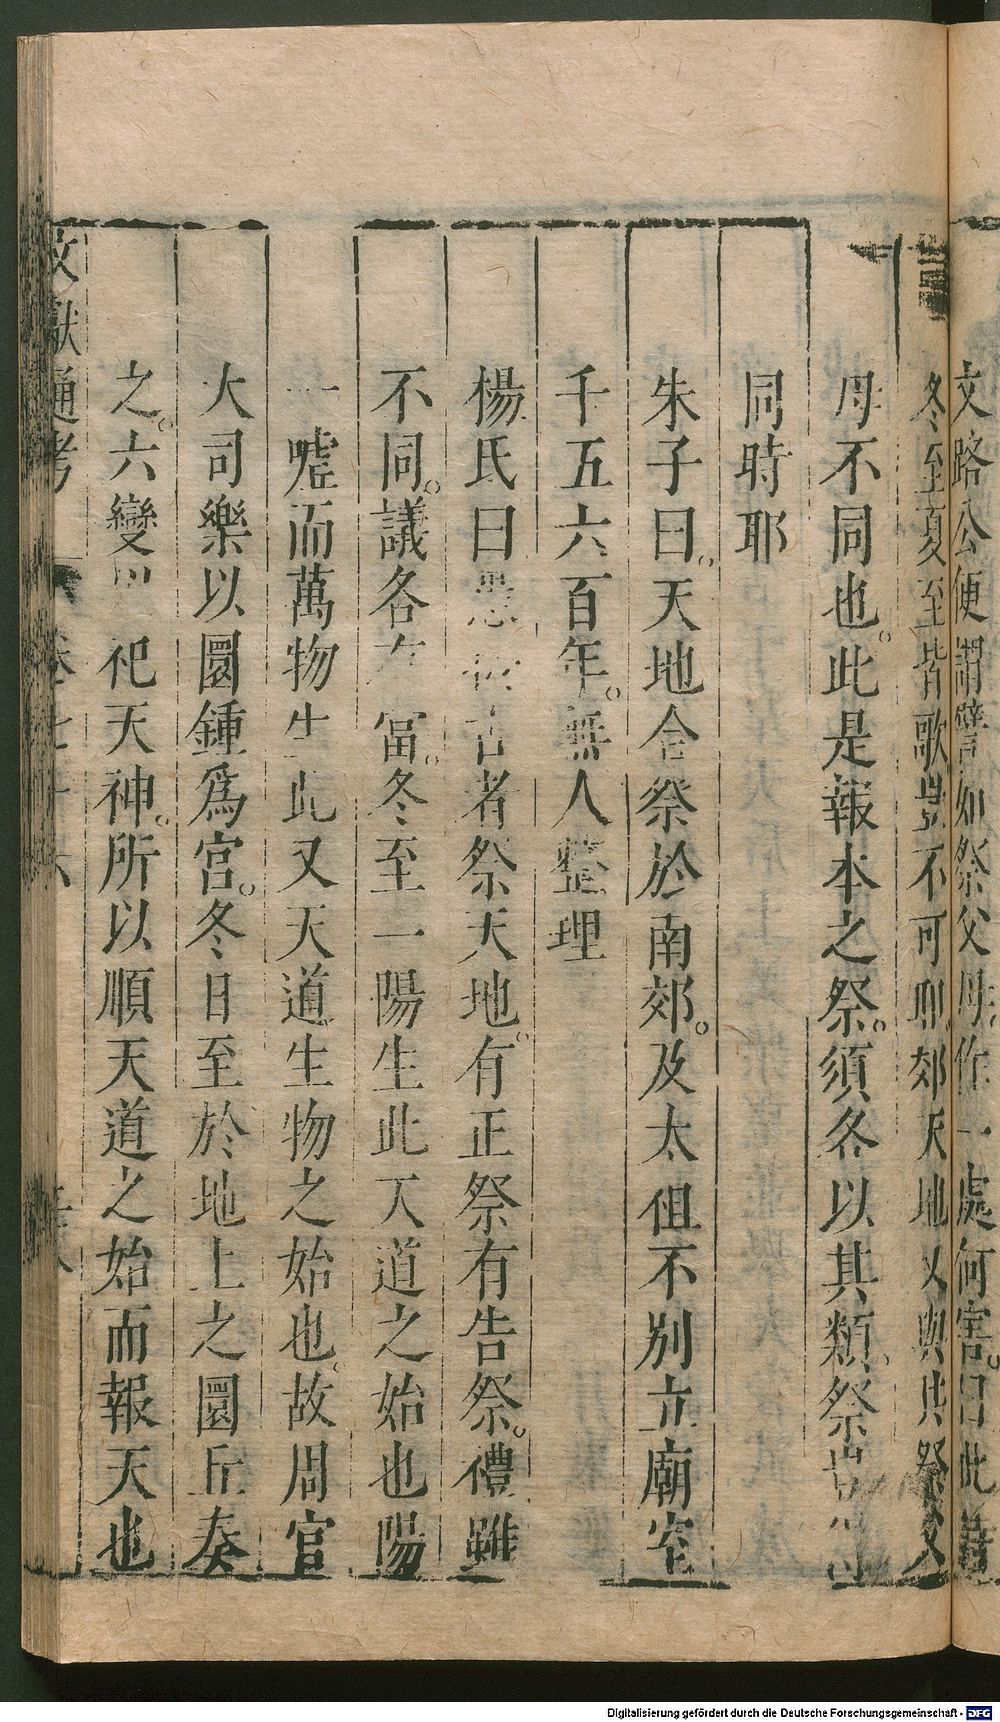 文路公便謂譬如祭父母作一處何害曰此譬
冬至夏至皆歌豈不可耶郊天地以與共祭父
母不同也此是報本之祭須各以其類祭
同時耶
朱子曰天地合祭於南郊及太但不別立廟室
千五六百年無人整理
楊氏曰愚 古者祭天地有正祭有告祭禮雖
不同議各 當冬至一陽生此天道之始也陽
一噓而萬物生此又天道生物之始也故周官
大司樂以圜鍾爲宮冬日至於地上之圜丘奏
之六變 祀天神所以順天道之始而報天也
文獻通考 卷七十六
Digitalisierung gefördert durch die Deutsche Forschungsgemeinschaft - DFG